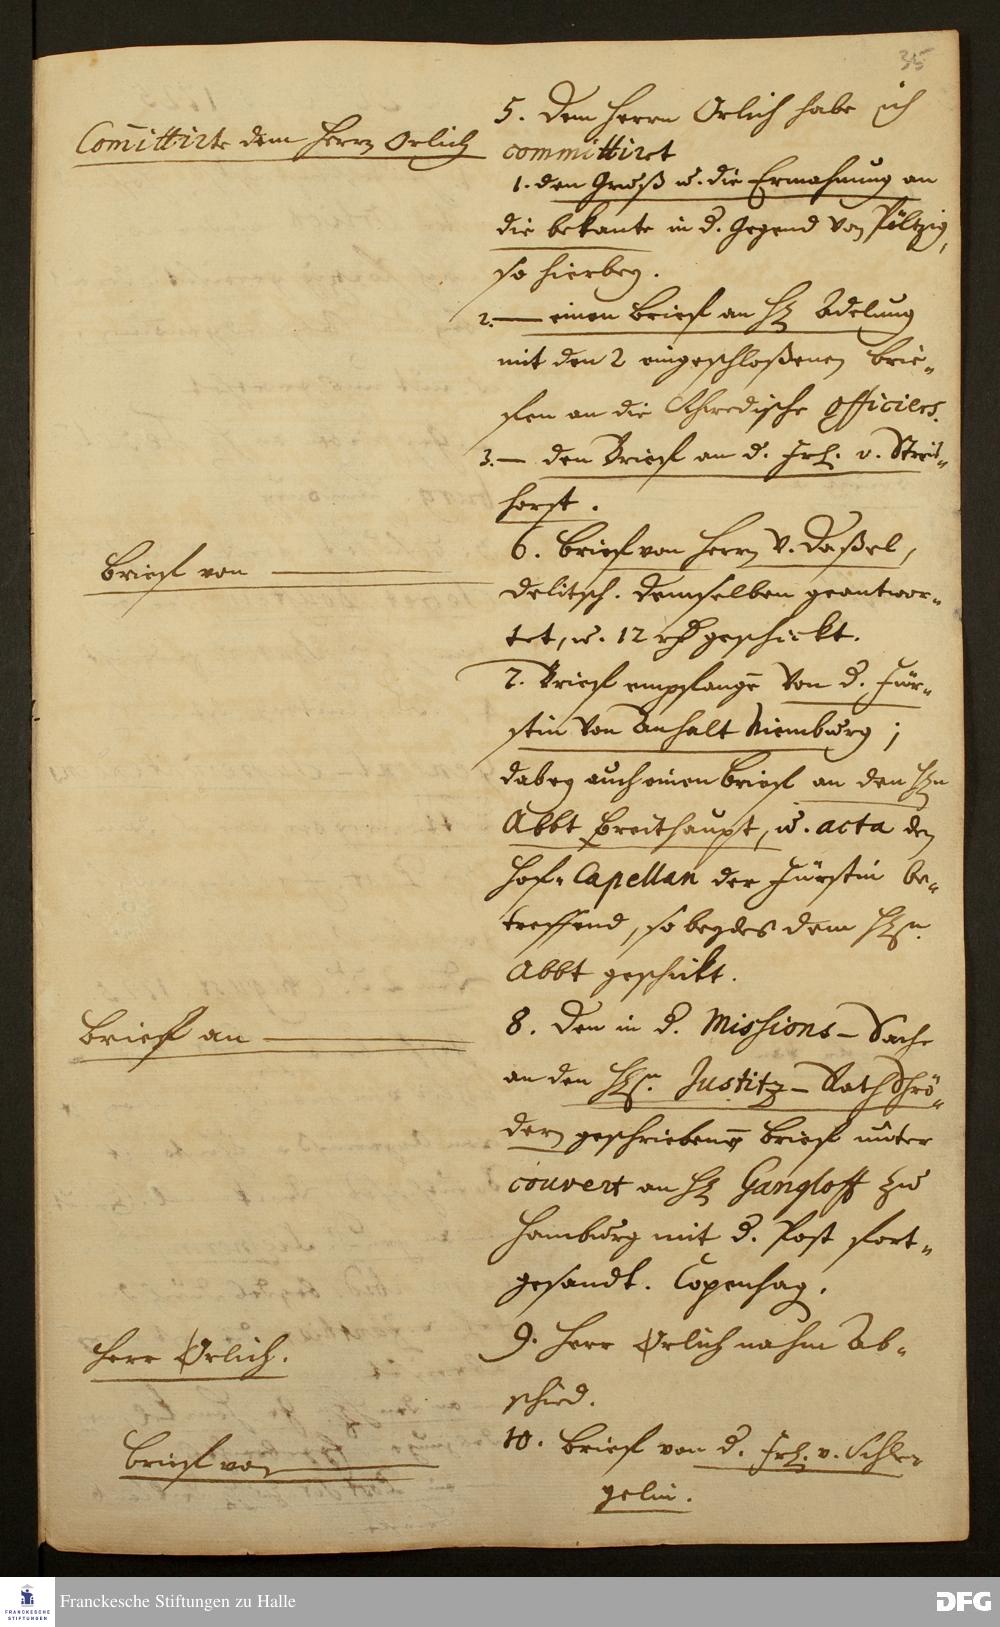 35
5. Dem Herrn Orlich habe ich
Com̃ittirt dem Herrn Orlich
committiret
1. den Gruß u. die Ermahnung an
die bekante in d. Gegend von Pöltzig,
so hierbey.
2.— einen brief an H. Adelung
mit den 2 eingeschloßenen brie-
fen an die Schwedische Officiers.
3.— den Brief an d. Frl. v. Streit-
horst.
6. brief von Herrn v. Daßel,
brief von
Delitsch. demselben geantwor-
tet, u. 12 rth geschickt.
7. Brief empfangē von d. Für-
stin von Anhalt Niemburg;
dabey auch einen brief an den Hrn
Abbt Breithaupt, u. acta den
Hof-Capellan der Fürstin be-
treffend, so beydes dem Hrn.
Abbt geschickt.
8. Den in d. Missions-Sache
brief an
an den Hrn. Justitz-Rath Schrö-
dern geschriebenen brief unter
couvert an H. Gangloff zu
Hamburg mit d. Post fort-
gesandt. Copenhag.
9. Herr Orlich nahm Ab-
Herr Orlich.
schied.
10. brief von d. Frl. v. Schle-
brief von
gelin.
FRANCKESCHE STIFTUNGEN
Franckesche Stiftungen zu Halle
DFG